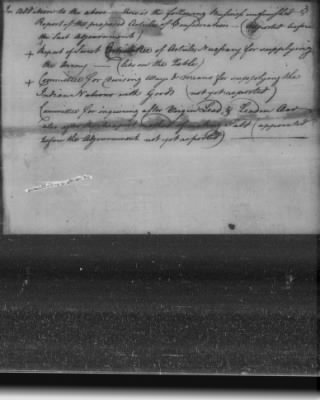 In Addition to the above there is the following Business unfinished
Report of the proposed Articles of Confederation (Reported before
the last Adjournment)
+ Report of Secret Committee of Articles necessary for supplying
the Army (lies on the Table)
+ Committee for devising ways & means for supplying the
Indian Nations with Goods (not yet reported)
Committee for inquiring after Virgin Lead & Leaden Ore
also of making Salt (appointed
before the Adjournment not yet reported)